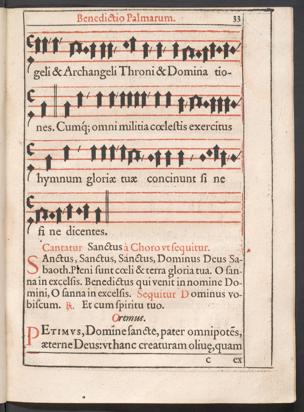 Benedictio Palmarum. 33
geli & Archangeli Throni & Domina tio-
nes. Cumq; omni militia cœlestis exercitus
hymnum gloriæ tuæ concinunt si ne
fi ne dicentes.
Cantatur Sanctus à Choro vt sequitur.
SAnctus, Sanctus, Sanctus, Dominus Deus Sa-
baoth. Pleni sunt cœli & terra gloria tua. O san-
na in excelsis. Benedictus qui venit in nomine Do-
mini, O sanna in excelsis. Sequitur Dominus vo-
biscum. ℟. Et cum spiritu tuo.
Oremus.
PETIMVS, Domine sancte, pater omnipotẽs,
æterne Deus: vt hanc creaturam oliuę, quam
c ex